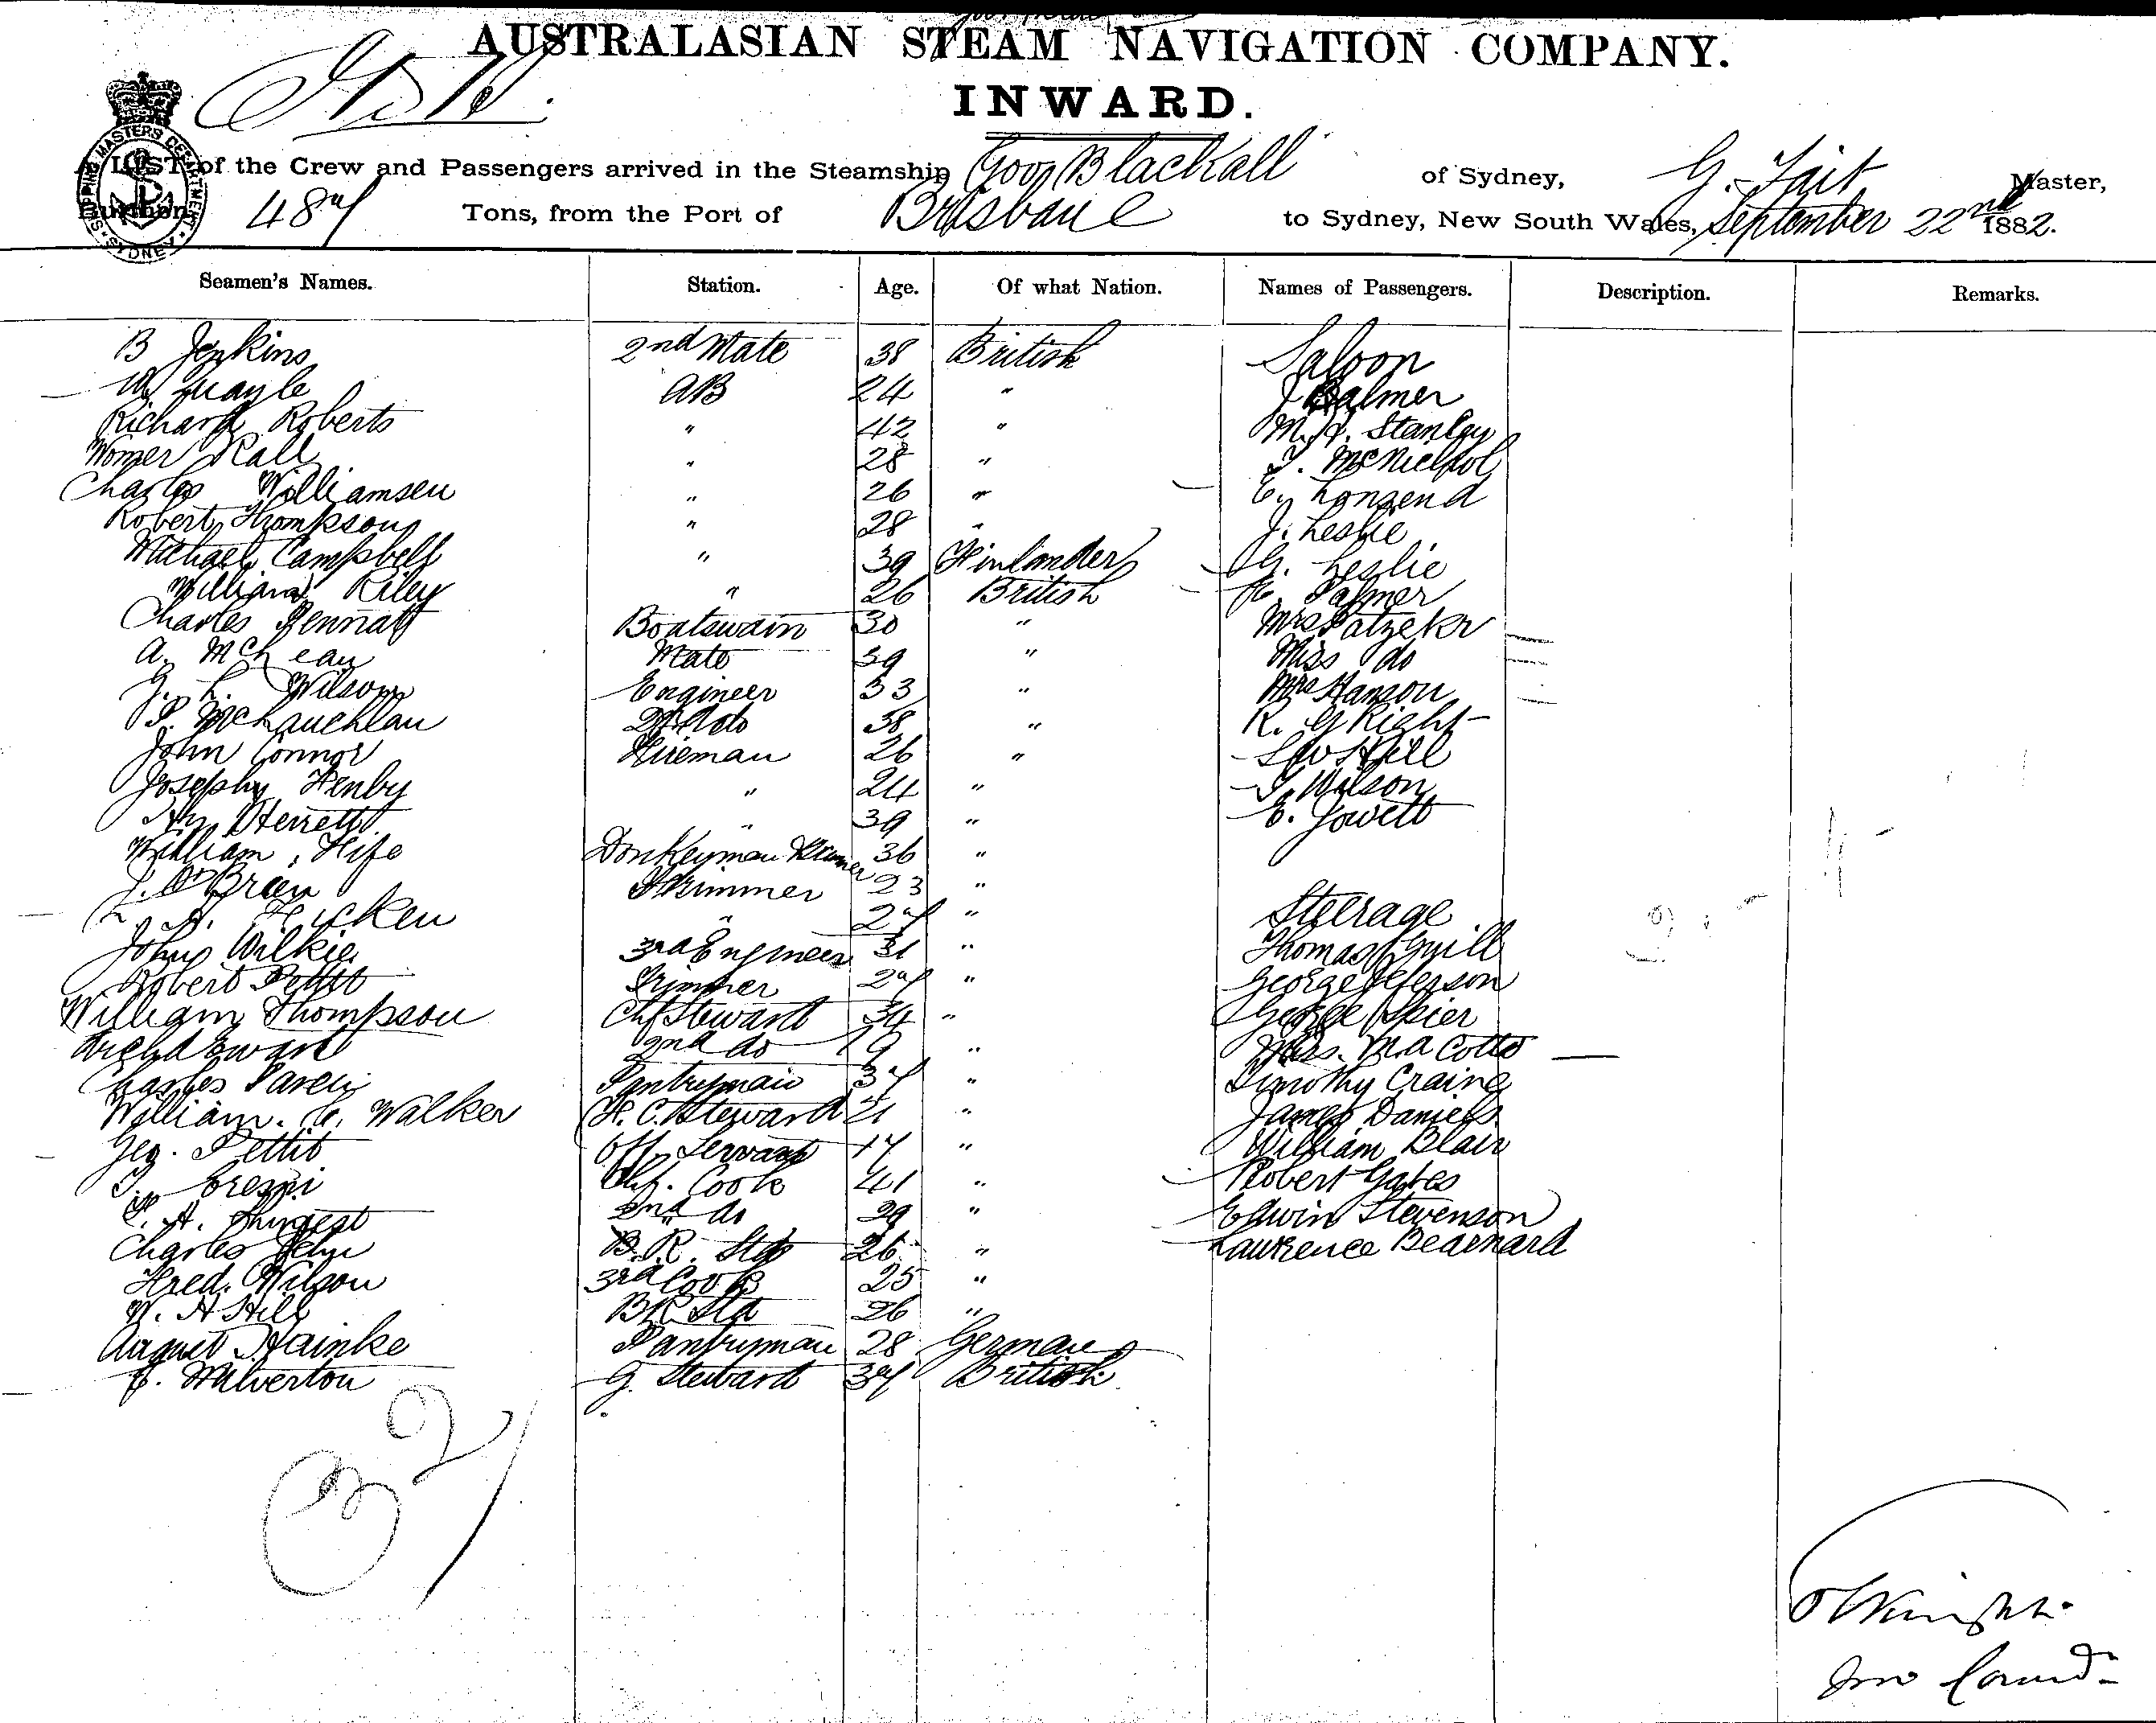 AUSTRALASIAN STEAM NAVIGATION COMPANY.
INWARD.
SHIPPING MASTERS DEPARTMENT SYDNEY
A LIST of the Crew and Passengers arrived in the Steamship Govr Blackall of Sydney, G. Tait Master,
Burthen 487 Tons, from the Port of Brisbane to Sydney, New South Wales, September 22nd 1882.
Seamen's Names. Station. Age. Of what Nation. Names of Passengers. Description. Remarks.
B Jenkins 2nd Mate 38 British Saloon
W Quayle AB 24 " J Palmer
Richard Roberts " 42 " M. H. Stanley
Rall " 28 " McNichol
Charles Williamsen " 26 " E. Lonsend
Robert Thompson " 28 " J. Leslie
Michael Campbell " 39 Finlander G. Leslie
William Riley " 26 British Palmer
Charles Bennatt Boatswain 30 " Mrs Patzekr
A. McLean Mate 39 " Miss do
J. L. Wilson Engineer 33 " Mrs Hanson
P. McLauchlan 2nd do 38 " R. G Right
John Connor Fireman 26 " Hill
Josephy Henby " 24 " J. Wilson
Herrett " 39 " E. Jowett
William Fife Donkeyman 36 "
J. O'Brien Trimmer 23 "
Hicken " 27 " Steerage
John Wilkie 3rd Engineer 31 " Thomas Guill
Robert Pettit Trimmer 27 " George Jefferson
William Thompson Chf Steward 34 " George Spier
Archd Ewart 2nd do 19 " Mrs. M.A Cotto
Charles Pantryman 37 " Timothy Craine
William. Walker F. C. Steward 21 " James Daniels
Geo. Pettit Off. Servant 17 " William Blair
Crespi Chf. Cook 41 " Robert Gates
2nd do 29 " Edwin Stevenson
Charles John B.R. Std 26 " Lawrence Bearnard
Fred. Wilson 3rd Cook 25 "
W. H Hill BR Std 26 "
August Hainke Pantryman 28 German
Wilverton G. Steward 37 British
32